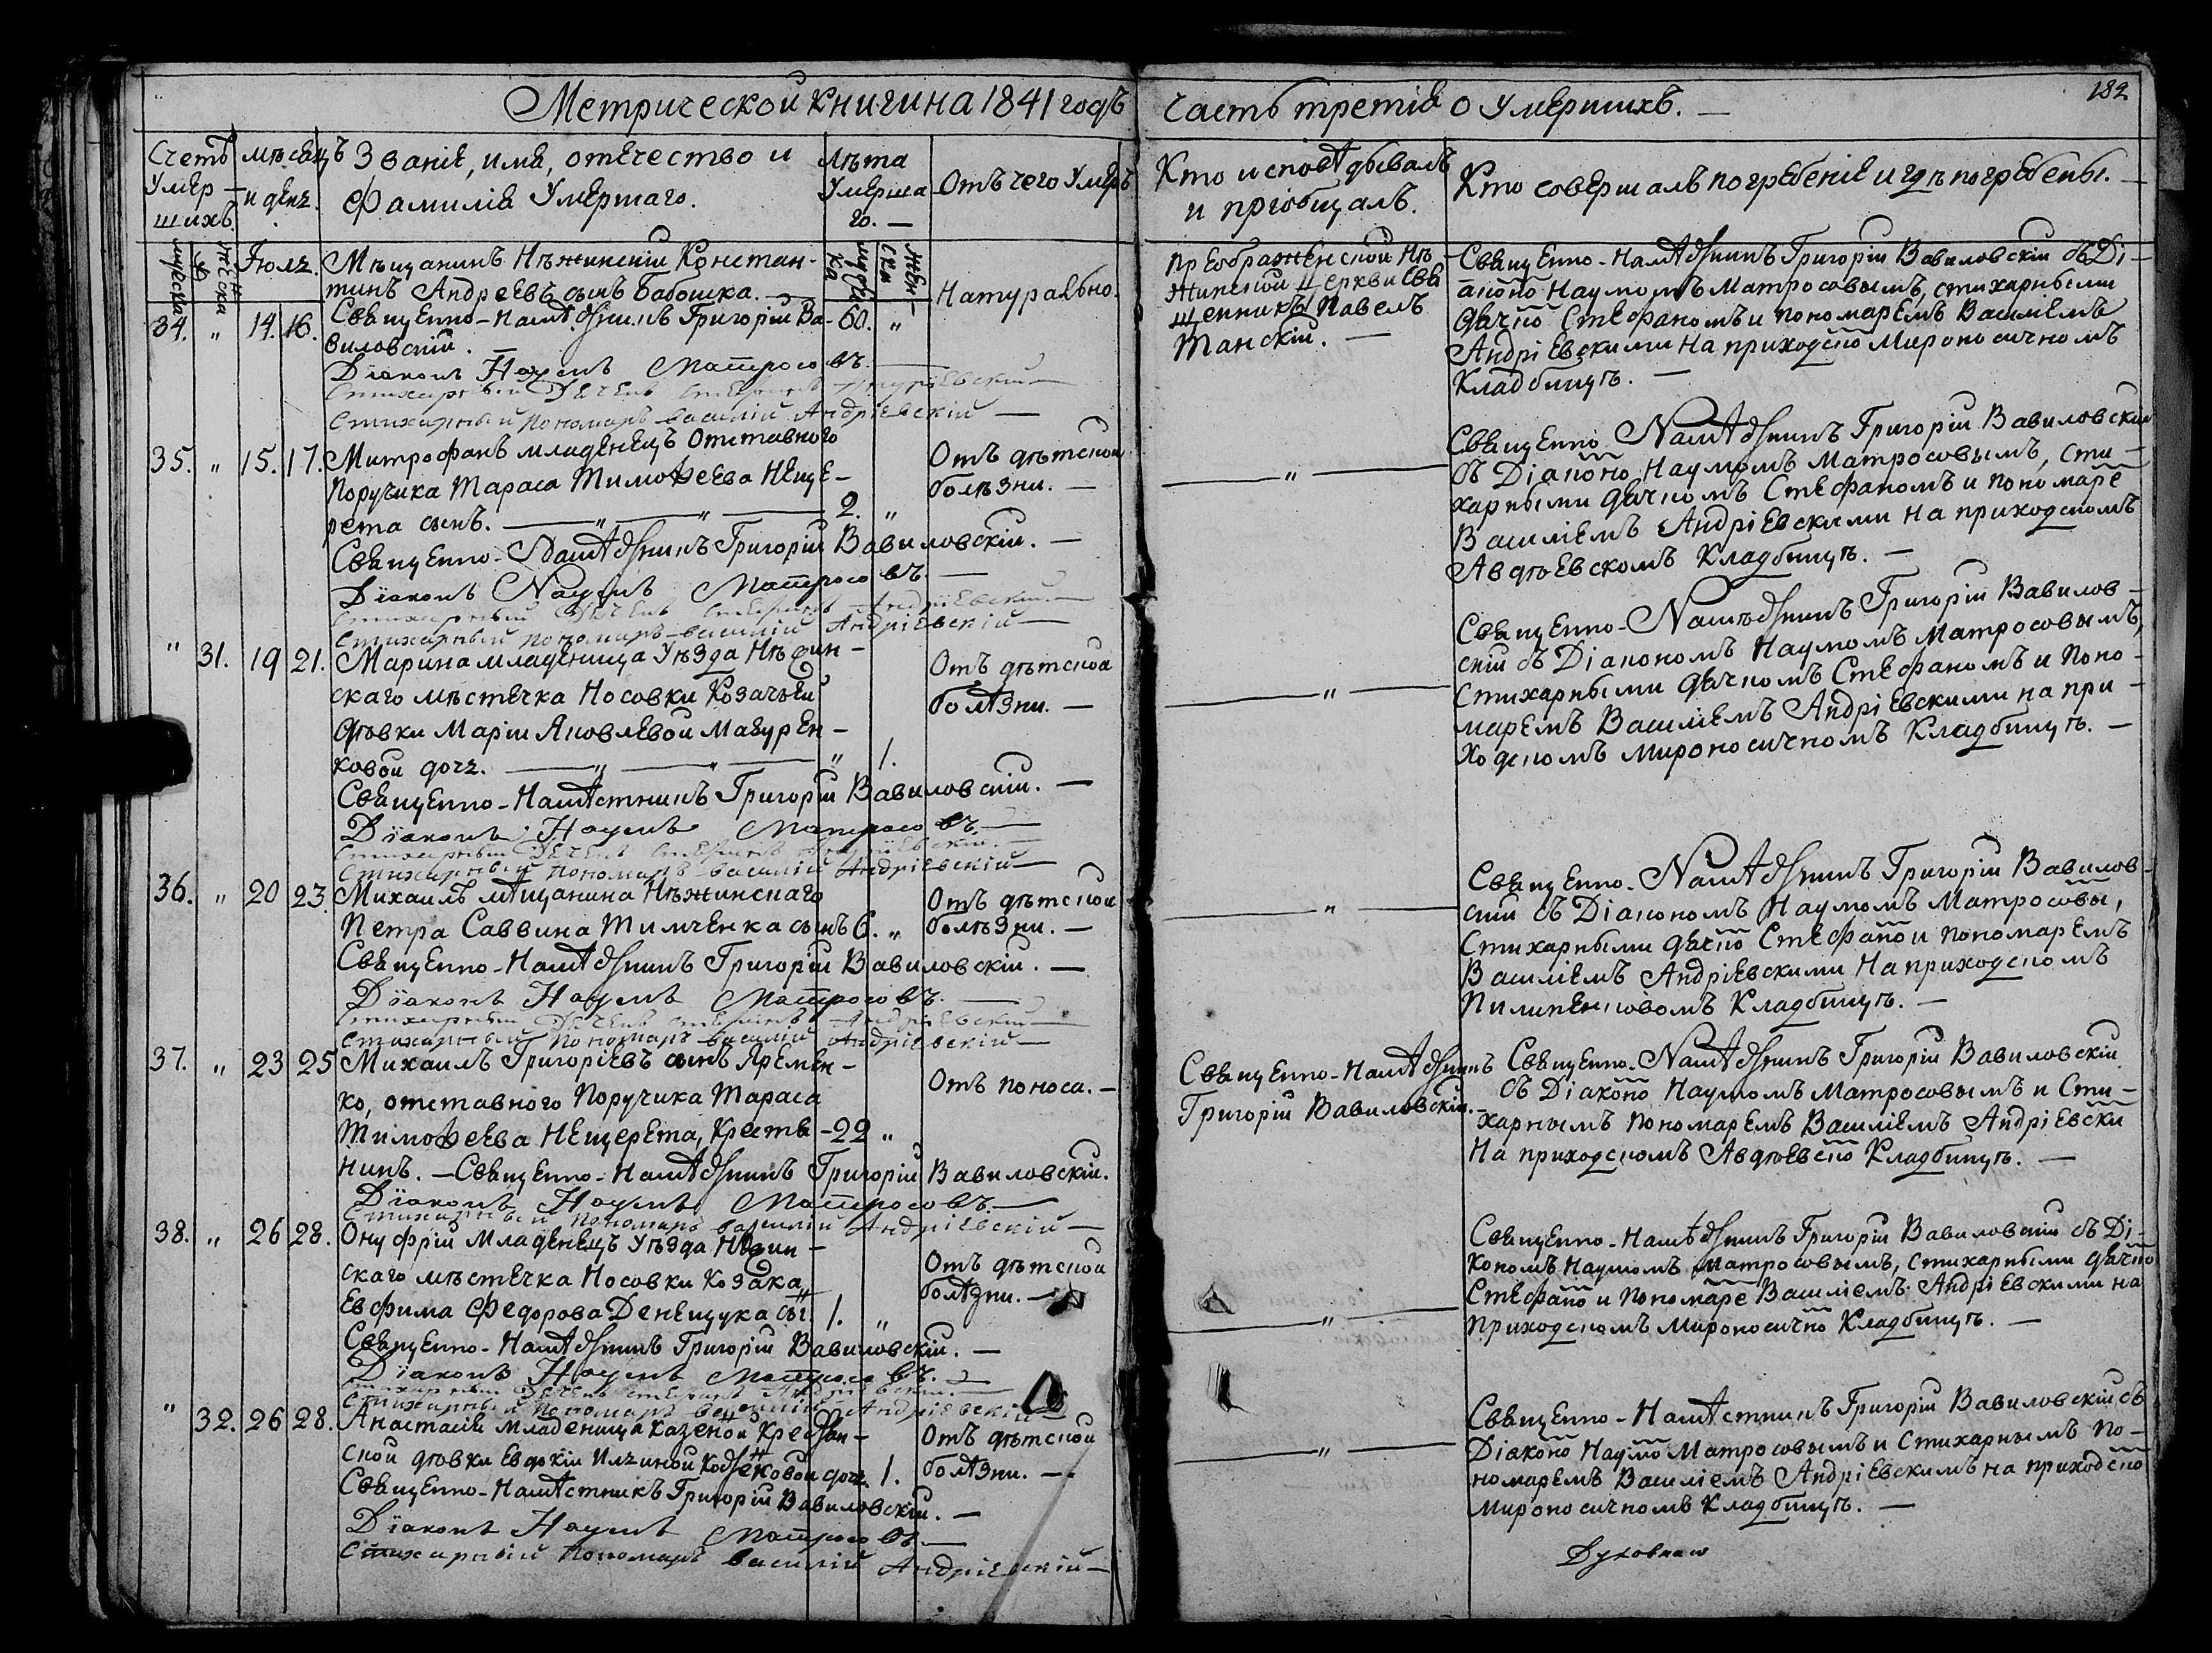 Метрической книги на 1841 годъ
Счетъ умер-шихъ.
мѣсяцъ и день.
Званіе, имя, отечество и
фамилія Умершаго.
лѣта Умерша го. —
Отъ чего Умеръ
мужеска
женска
Іюль.
мужеска
женска
Мѣщанинъ Нѣжинскій Констан-
тинъ Андреевъ сынъ Бабошка. —
34. „ 14. 16. 60. „ Натурально.
Священно-Намѣстникъ Григорій Ва-
виловскій. —
Діаконъ Наумъ Матросовъ. —
Стихарный Дьячекъ Стефанъ Андріевскій —
Стихарный Пономарь Василій Андріевскій —
35. „ 15. 17. Митрофанъ младенецъ Отставного
Поручика Тараса Тимофеева Неще-
рета сынъ. — „ — „ — 2. „
Отъ дѣтской
болѣзни. —
Священно-Намѣстникъ Григорій Вавиловскій. —
Діаконъ Наумъ Матросовъ. —
Стихарный Дьячекъ Стефанъ Андріевскій —
Стихарный Пономарь Василій Андріевскій —
„ 31. 19 21. Марина младеница Уѣзда Нѣжин-
скаго мѣстечка Носовки Козачьей
дѣвки Маріи Яковлевой Мазурен-
ковой дочь. — „ — „ — „ 1.
Отъ дѣтской
болѣзни. —
Священно-Намѣстникъ Григорій Вавиловскій. —
Діаконъ Наумъ Матросовъ. —
Стихарный Дьячекъ Стефанъ Андріевскій. —
Стихарный Пономарь Василій Андріевскій —
36. „ 20 23. Михаилъ мѣщанина Нѣжинскаго
Петра Саввина Тимченка сынъ 6. „
Отъ дѣтской
болѣзни. —
Священно-Намѣстникъ Григорій Вавиловскій. —
Діаконъ Наумъ Матросовъ. —
Стихарный Дьячекъ Стефанъ Андріевскій —
Стихарный Пономарь Василій Андріевскій —
37. „ 23 25 Михаилъ Григоріевъ сынъ Яремен-
ко, отставного Поручика Тараса
Тимофеева Нещерета, Крестя- 22 „
нинъ. — Священно-Намѣстникъ Григорій Вавиловскій.
Отъ поноса. —
Діаконъ Наумъ Матросовъ. —
Стихарный Пономарь Василій Андріевскій —
38. „ 26 28. Онуфрій Младенецъ Уѣзда Нѣжин-
скаго мѣстечка Носовки Козака
Евфима Федорова Денещука сы. 1. „
Отъ дѣтской
болѣзни. —
Священно-Намѣстникъ Григорій Вавиловскій. —
Діаконъ Наумъ Матросовъ. —
Стихарный Дьячекъ Стефанъ Андріевскій. —
Стихарный Пономарь Василій Андріевскій —
„ 32. 26 28. Анастасія Младеница Казеной Кресьян-
ской дѣвки Евдокіи Ильиной дочь. 1.
Отъ дѣтской
болѣзни. —
Священно-Намѣстникъ Григорій Вавиловскій. —
Діаконъ Наумъ Матросовъ. —
Стихарный Пономарь Василій Андріевскій —
часть третія о Умершихъ. —
182
Кто исповѣдывалъ
и пріобщалъ.
Кто совершалъ погребеніе и гдѣ погребены. —
Преображенской Нѣ-
жинской Церкви Свя
щенникъ Павелъ
Танскій. —
Священно-Намѣстникъ Григорій Вавиловскій съ Ді-
аконо Наумомъ Матросовымъ, стихарными
дьячко Стефаномъ и пономаремъ Василіемъ
Андріевскими На приходско Мироносичномъ
Кладбищѣ. —
— „ —
Священно Намѣстникъ Григорій Вавиловскій
съ Діаконо Наумомъ Матросовымъ, Сти-
харными дьячкомъ Стефаномъ и пономаре
Василіемъ Андріевскими На приходскомъ
Авдѣевскомъ Кладбищѣ. —
— „ —
Священно-Намѣстникъ Григорій Вавилов-
скій съ Діакономъ Наумомъ Матросовымъ,
Стихарными дьячкомъ Стефаномъ и Поно-
маремъ Василіемъ Андріевскими на при-
ходскомъ Мироносичномъ Кладбищѣ. —
— „ —
Священно-Намѣстникъ Григорій Вавилов-
скій съ Діакономъ Наумомъ Матросовы,
Стихарными дьячко Стефано и пономаремъ
Василіемъ Андріевскими На приходскомъ
Пилипенковомъ Кладбищѣ. —
Священно-Намѣстникъ
Григорій Вавиловскій. —
Священно-Намѣстникъ Григорій Вавиловскій
съ Діаконо Наумомъ Матросовымъ и Сти-
харнымъ пономаремъ Василіемъ Андріевски
На приходскомъ Авдѣевско Кладбищѣ. —
— „ —
Священно-Намѣстникъ Григорій Вавиловскій съ Ді-
кономъ Наумомъ Матросовымъ, стихарными дьячко
Стефано и Пономаре Василіемъ Андріевскими на
приходскомъ Мироносично Кладбищѣ. —
— „ —
Священно-Намѣстникъ Григорій Вавиловскій съ
Діаконо Наумо Матросовымъ и Стихарнымъ По-
номаремъ Василіемъ Андріевскимъ на приходско
Мироносичномъ Кладбищѣ. —